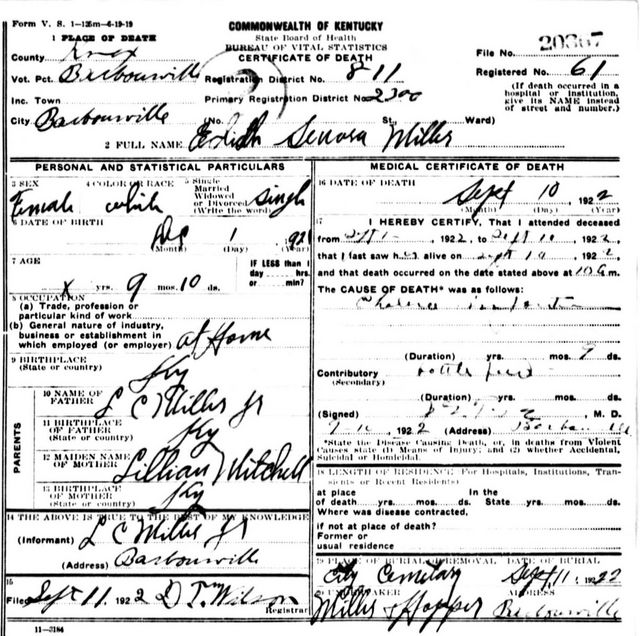 Form V. S. 1-125m-6-19-19
COMMONWEALTH OF KENTUCKY
State Board of Health
BUREAU OF VITAL STATISTICS
CERTIFICATE OF DEATH
1 PLACE OF DEATH
County Knox
File No. 20367
Vot. Pct. Barbourville Registration District No. 811
Registered No. 61
Inc. Town
Primary Registration District No. 2300
(If death occurred in a hospital or institution, give its NAME instead of street and number.)
City Barbourville (No. St. Ward)
2 FULL NAME Edith Senora Miller
PERSONAL AND STATISTICAL PARTICULARS
3 SEX Female
4 COLOR OR RACE white
5 Single Married Widowed or Divorced (Write the word) Single
6 DATE OF BIRTH
Dec 1 1921
(Day) (Year)
7 AGE
IF LESS than 1 day hrs. or min?
x yrs. 9 mos. 10 ds.
8 OCCUPATION
(a) Trade, profession or particular kind of work
(b) General nature of industry, business or establishment in which employed (or employer) at Home
9 BIRTHPLACE
(State or country) Ky
PARENTS
10 NAME OF FATHER L C Miller Jr
11 BIRTHPLACE OF FATHER
(State or country) Ky
12 MAIDEN NAME OF MOTHER Lillian Mitchell
13 BIRTHPLACE OF MOTHER
(State or country) Ky
14 THE ABOVE IS TRUE TO THE BEST OF MY KNOWLEDGE
(Informant) L C Miller Jr
(Address) Barbourville
15
Filed Sept 11, 1922 D T Wilson
Registrar
11-3184
MEDICAL CERTIFICATE OF DEATH
16 DATE OF DEATH
Sept 10, 1922
(Month) (Day) (Year)
17 I HEREBY CERTIFY, That I attended deceased
from Sept 1, 1922, to Sept 10, 1922
that I last saw her alive on Sept 10, 1922
and that death occurred on the date stated above at 10 m.
The CAUSE OF DEATH* was as follows:
Cholera infantum
(Duration) yrs. mos. 9 ds.
Contributory bottle feed
(Secondary)
(Duration) yrs. mos. ds.
(Signed) , M. D.
1922 (Address)
*State the Disease Causing Death, or, in deaths from Violent Causes state (1) Means of Injury; and (2) whether Accidental, Suicidal or Homicidal.
18 LENGTH OF RESIDENCE. For Hospitals, Institutions, Transients or Recent Residents)
at place of death yrs. mos. ds. In the State yrs. mos. ds.
Where was disease contracted,
if not at place of death?
Former or usual residence
19 PLACE OF BURIAL OR REMOVAL DATE OF BURIAL
City Cemetary Sept 11, 1922
20 UNDERTAKER ADDRESS
Miller & Hopper Barbourville